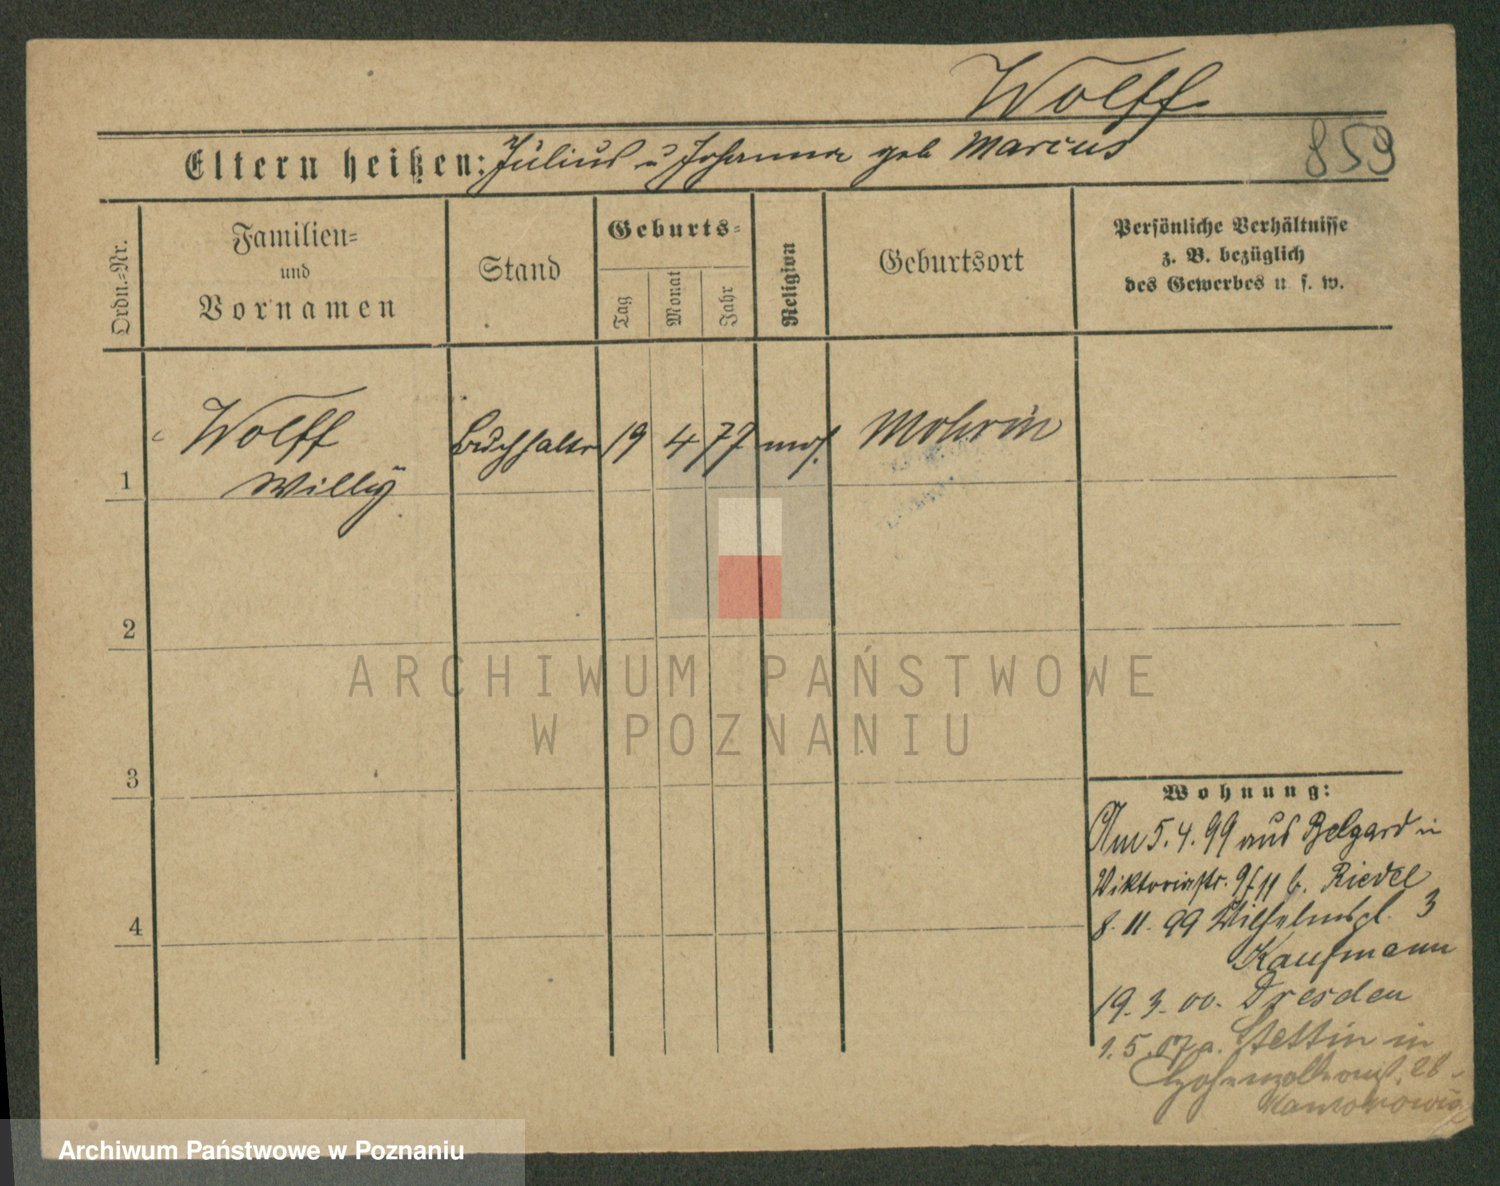 Wolff
859
Eltern heißen: Julius u Johanna geb Marcus
Ordn.-Nr.
Familien-
und
Vornamen
Stand
Geburts-
Tag
Monat
Jahr
Religion
Geburtsort
Persönliche Verhältnisse
z. B. bezüglich
des Gewerbes u. s. w.
1
Wolff
Willy
Buchhalter
19
4
77
mos.
Mohrin
2
3
4
Wohnung:
Am 5.4.99 aus Belgard in
Viktoriastr. b. Riedel
8.11.99 Wilhelmspl. 3
Kaufmann
19.3.00. Dresden
1.5.07 a. Stettin in
28
ARCHIWUM PAŃSTWOWE
W POZNANIU
Archiwum Państwowe w Poznaniu